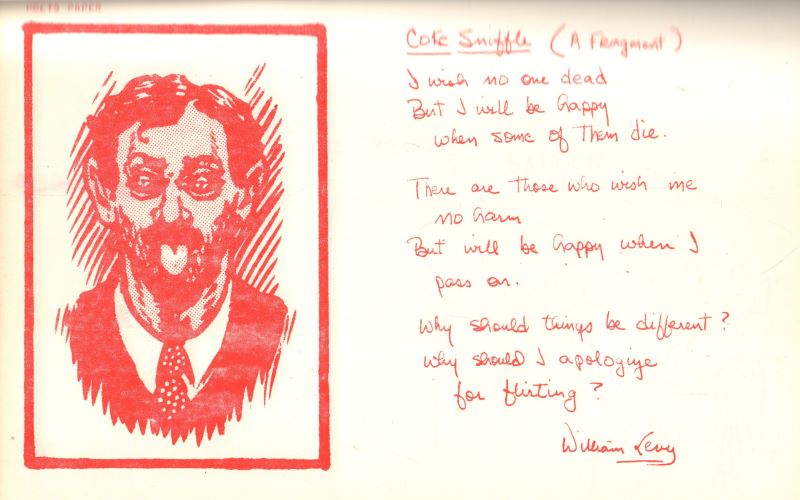 POETS PAPER
Coke Sniffle (A Fragment)
I wish no one dead
But I will be happy
when some of them die.
There are those who wish me
no harm
But will be happy when I
pass on.
Why should things be different?
why should I apologize
for flirting?
William Levy